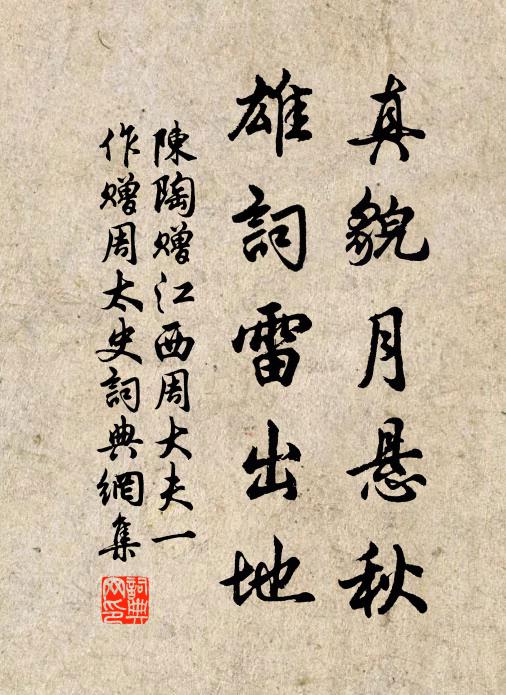 真貌月悬秋
雄詞雷出地
陳陶贈江西周大夫一
作贈周太史詞典網集
詞典网印